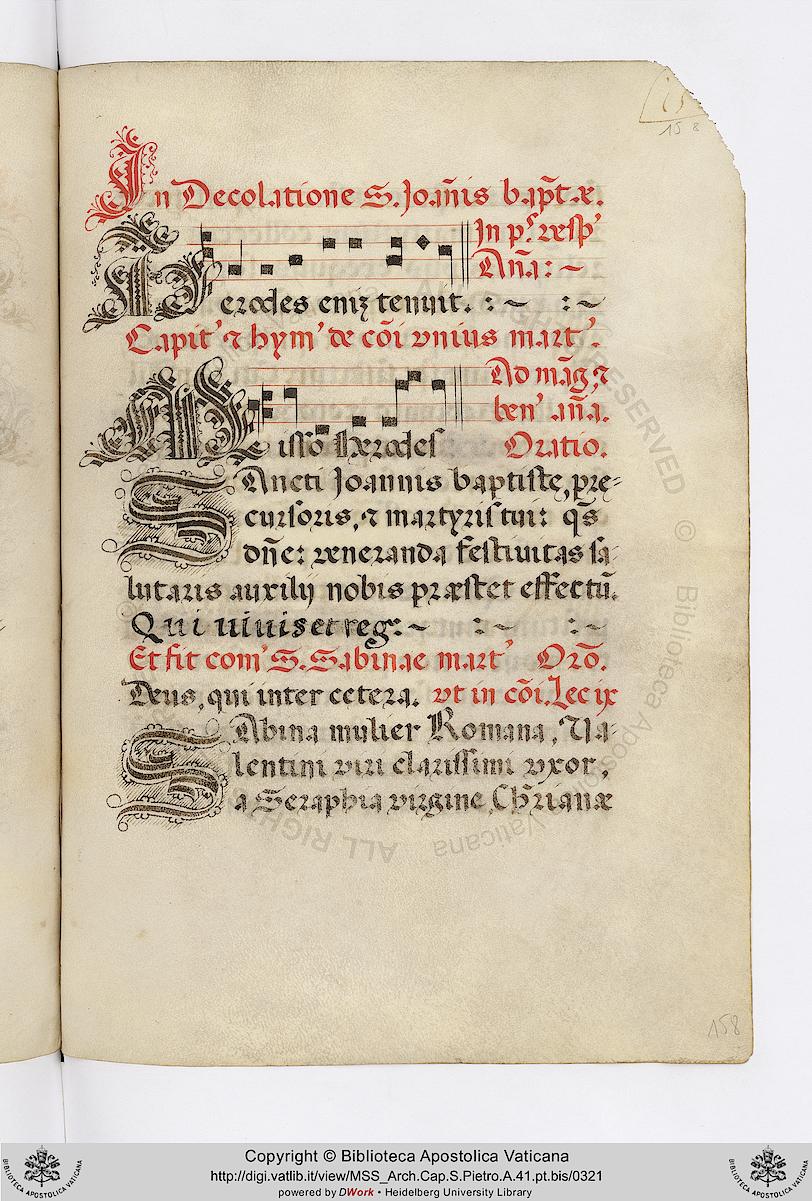 158
In Decolatione S. Joan̄is bap̄tæ.
In p.ͬ vesp'
An̄a: ~
Herodes eniȝ tenuit. : ~ : ~
Capit' ⁊ hym' de cōi vnius mart'.
Ad māg. ⁊
ben' an̄a.
Misso Herodes Oratio.
SAncti Joannis baptiste, pre-
cursoris, ⁊ martyris tui: q̄s
dn̄e: veneranda festiuitas sa-
lutaris auxilij nobis præstet effectū.
Qui uiuis et reg: ~ : ~ : ~
Et fit com' S. Sabinae mart' Orō.
Deus, qui inter cetera. vt in cōi. Lec ix
SAbina mulier Romana, Va-
lentini viri clarissimi vxor,
a Seraphia virgine Chr̄ianæ
158
ALL RIGHTS RESERVED © Biblioteca Apostolica Vaticana
BIBLIOTECA APOSTOLICA VATICANA
Copyright © Biblioteca Apostolica Vaticana
http://digi.vatlib.it/view/MSS_Arch.Cap.S.Pietro.A.41.pt.bis/0321
powered by DWork • Heidelberg University Library
BIBLIOTECA APOSTOLICA VATICANA